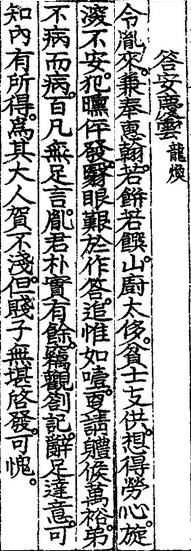 答安慶雲 龍煥
令胤來。兼奉惠翰。若餠若饌。山廚太侈。貧士支供。想得勞心。旋
滾不安。犯曛伻發。翳眼艱於作答。追惟如噎。更請軆候萬裕。弟
不病而病。百凡無足言。胤君朴實有餘。竊觀劄記。辭足達意。可
知內有所得。爲其大人賀不淺。但賤子無堪啓發。可愧。